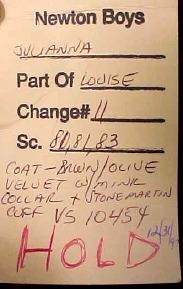 Newton Boys
JULIANNA
Part Of LOUISE
Change# 11
Sc. 80, 81, 83
COAT - BRWN/OLIVE
VELVET W/ MINK
COLLAR + STONEMARTIN
CUFF VS 10454
HOLD